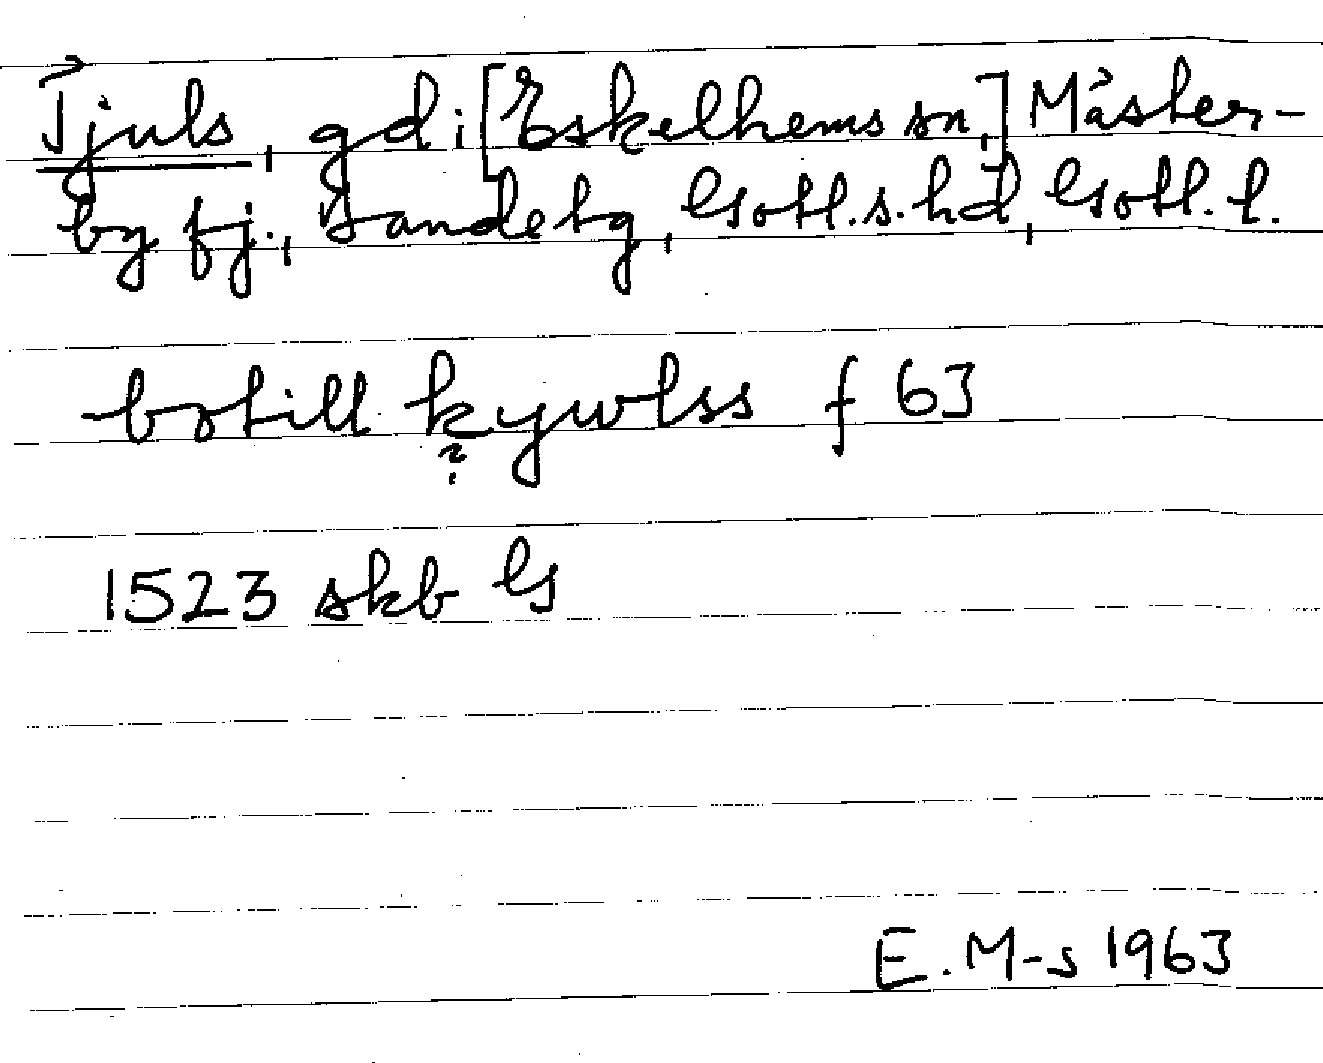 Tjuls, gd i [Eskelhems sn,] Mäster-
by fj., Bandetg, Gotl.s.hd, Gotl. l.
botill kywlss f 63
?
1523 skb G
E. M-s 1963